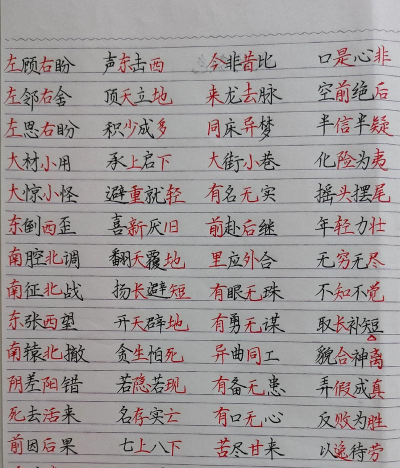 左顾右盼 声东击西 今非昔比 口是心非
左邻右舍 顶天立地 来龙去脉 空前绝后
左思右盼 积少成多 同床异梦 半信半疑
大材小用 承上启下 大街小巷 化险为夷
大惊小怪 避重就轻 有名无实 摇头摆尾
东倒西歪 喜新厌旧 前赴后继 年轻力壮
南腔北调 翻天覆地 里应外合 无穷无尽
南征北战 扬长避短 有眼无珠 不知不觉
东张西望 开天辟地 有勇无谋 取长补短
南辕北撤 贪生怕死 异曲同工 貌合神离
阴差阳错 若隐若现 有备无患 弄假成真
死去活来 名存实亡 有口无心 反败为胜
前因后果 七上八下 苦尽甘来 以逸待劳